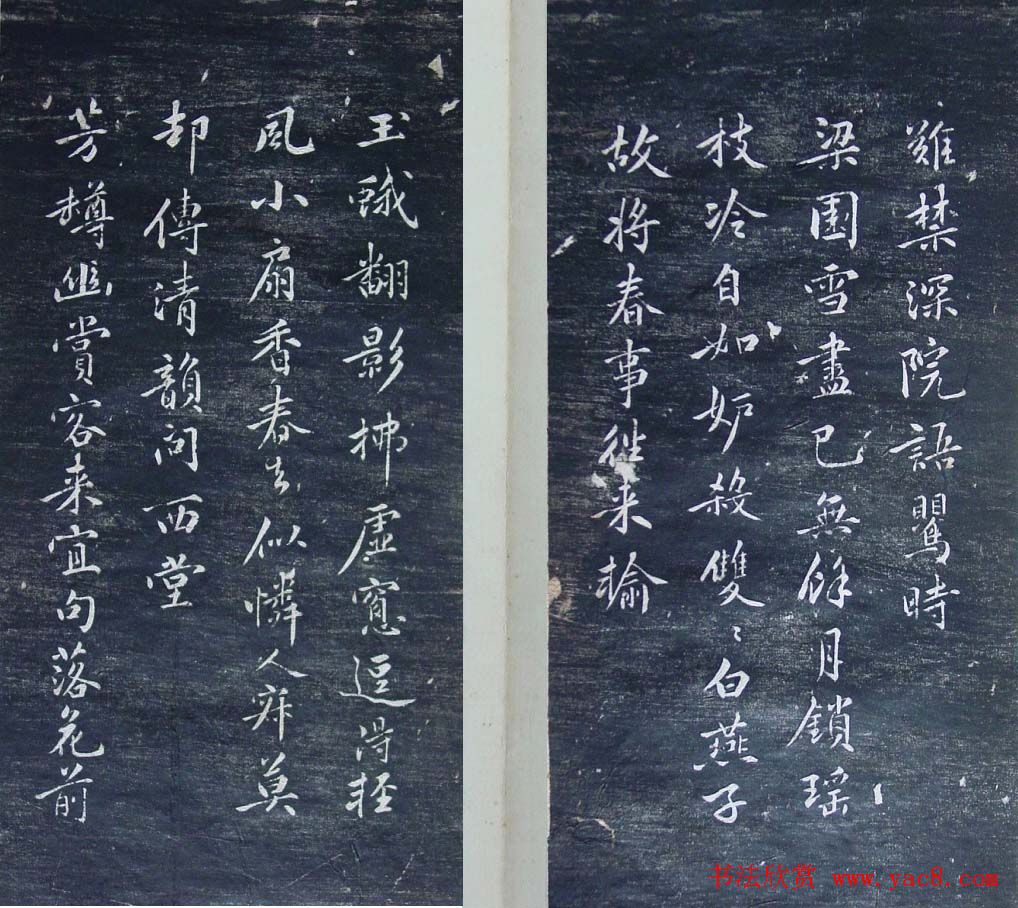 難禁深院語鶯時
梁園雪盡已無餘月鎖瑤
枝冷自如妒殺雙〻白燕子
故將春事往来輸
玉蛾翻影拂虛窓逗得輕
風小扇香春去似憐人寂莫
却傳清韻問西堂
芳樽幽賞客来宜句落花前
书法欣赏 www.yac8.com